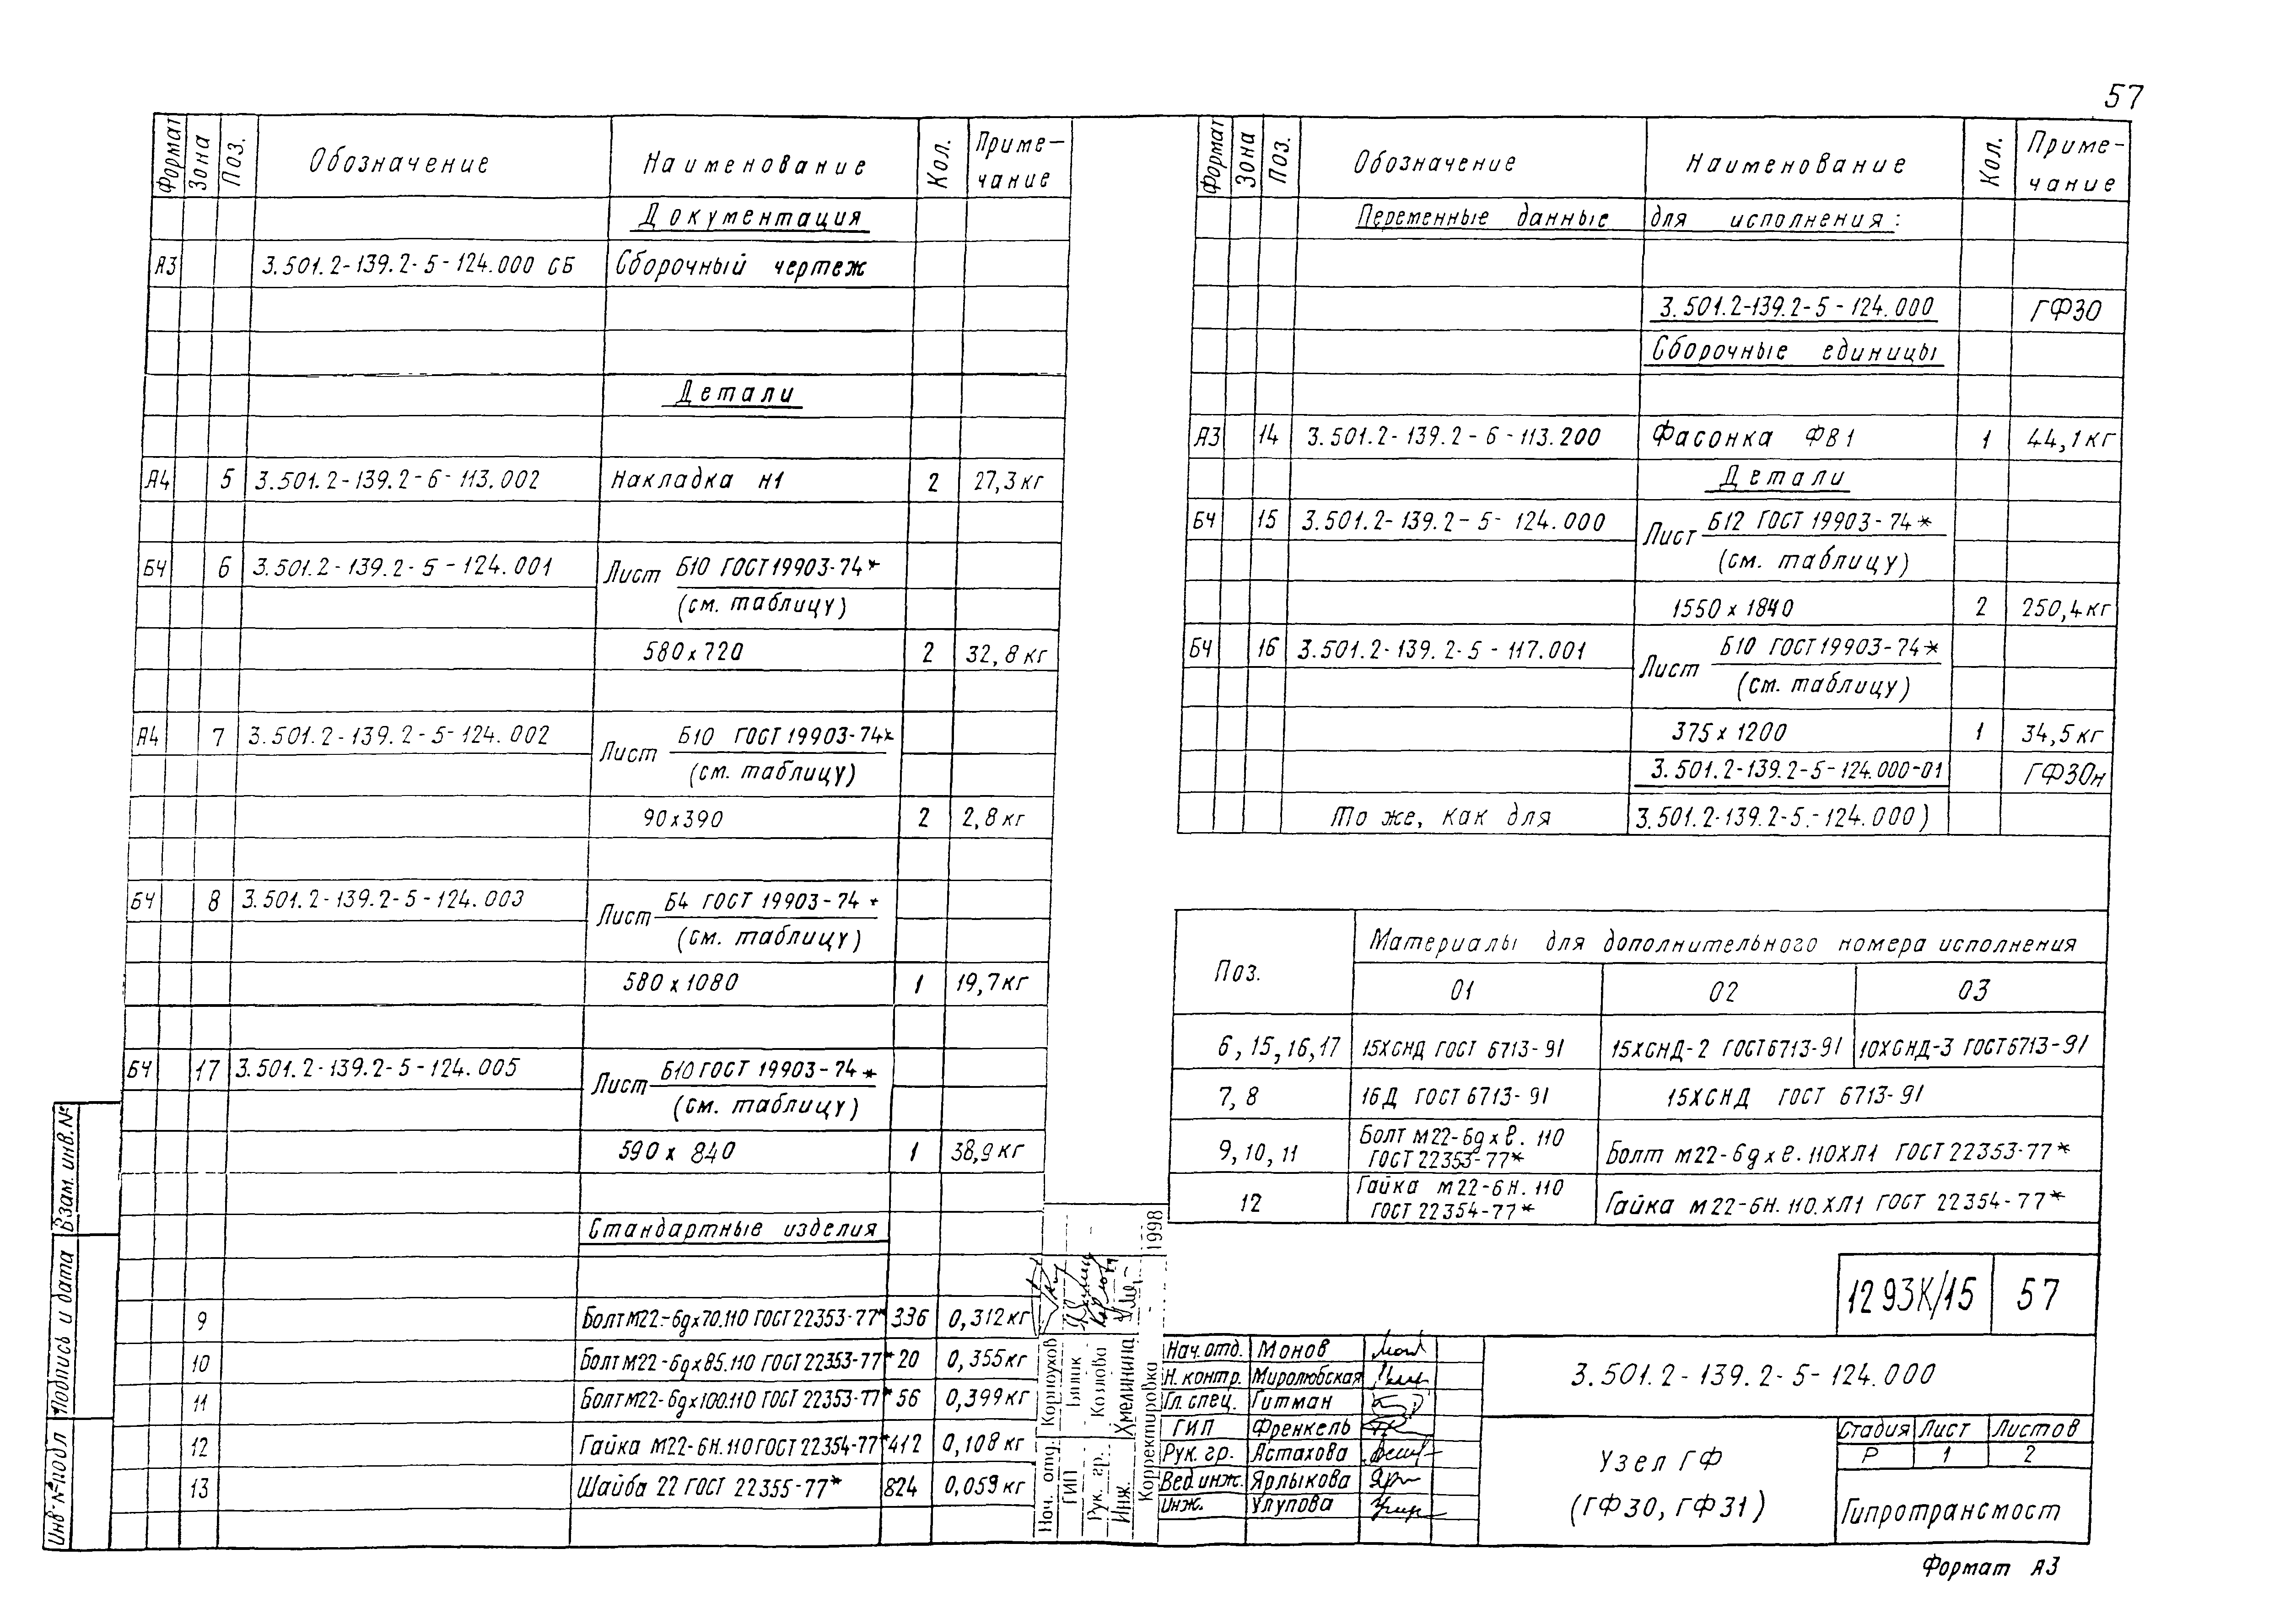 57
Формат Зона Поз. Обозначение Наименование Кол. Приме-чание
Документация
А3 3.501.2-139.2-5-124.000 СБ Сборочный чертеж
Детали
А4 5 3.501.2-139.2-6-113.002 Накладка Н1 2 27,3 кг
БЧ 6 3.501.2-139.2-5-124.001 Лист Б10 ГОСТ 19903-74*
(см. таблицу)
580х720 2 32,8 кг
А4 7 3.501.2-139.2-5-124.002 Лист Б10 ГОСТ 19903-74*
(см. таблицу)
90х390 2 2,8 кг
БЧ 8 3.501.2-139.2-5-124.003 Лист Б4 ГОСТ 19903-74*
(см. таблицу)
580х1080 1 19,7 кг
БЧ 17 3.501.2-139.2-5-124.005 Лист Б10 ГОСТ 19903-74*
(см. таблицу)
590х 840 1 38,9 кг
Стандартные изделия
9 Болт М22-6gх70.110 ГОСТ 22353-77* 336 0,312 кг
10 Болт М22-6gх85.110 ГОСТ 22353-77* 20 0,355 кг
11 Болт М22-6gх100.110 ГОСТ 22353-77* 56 0,399 кг
12 Гайка М22-6Н.110 ГОСТ 22354-77* 412 0,108 кг
13 Шайба 22 ГОСТ 22355-77* 824 0,059 кг
Формат Зона Поз. Обозначение Наименование Кол. Приме-чание
Переменные данные для исполнения:
3.501.2-139.2-5-124.000 ГФ30
Сборочные единицы
А3 14 3.501.2-139.2-6-113.200 Фасонка ФВ1 1 44,1 кг
Детали
БЧ 15 3.501.2-139.2-5-124.000 Лист Б12 ГОСТ 19903-74*
(см. таблицу)
1550х1840 2 250,4 кг
БЧ 16 3.501.2-139.2-5-117.001 Лист Б10 ГОСТ 19903-74*
(см. таблицу)
375х1200 1 34,5 кг
3.501.2-139.2-5-124.000-01 ГФ30н
То же, как для 3.501.2-139.2-5.-124.000)
Поз. Материалы для дополнительного номера исполнения
01 02 03
6, 15, 16, 17 15ХСНД ГОСТ 6713-91 15ХСНД-2 ГОСТ 6713-91 10ХСНД-3 ГОСТ 6713-91
7, 8 16Д ГОСТ 6713-91 15ХСНД ГОСТ 6713-91
9, 10, 11 Болт М22-6gхℓ.110 ГОСТ 22353-77* Болт М22-6gхℓ.110ХЛ1 ГОСТ 22353-77*
12 Гайка М22-6Н.110 ГОСТ 22354-77* Гайка М22-6Н.110.ХЛ1 ГОСТ 22354-77*
1293К/15 57
Нач. отд. Монов
Н. контр. Миролюбская
Гл. спец. Гитман
ГИП Френкель
Рук. гр. Астахова
Вед. инж. Ярлыкова
Инж. Улупова
3.501.2-139.2-5-124.000
Узел ГФ
(ГФ30, ГФ31)
Стадия Лист Листов
Р 1 2
Гипротрансмост
Формат А3
Нач. отд. Корноухов
ГИП
Рук. гр. Козлова
Инж. Хмелинина
Корректировка 1998
Взам. инв. №
Подпись и дата
Инв. № подл